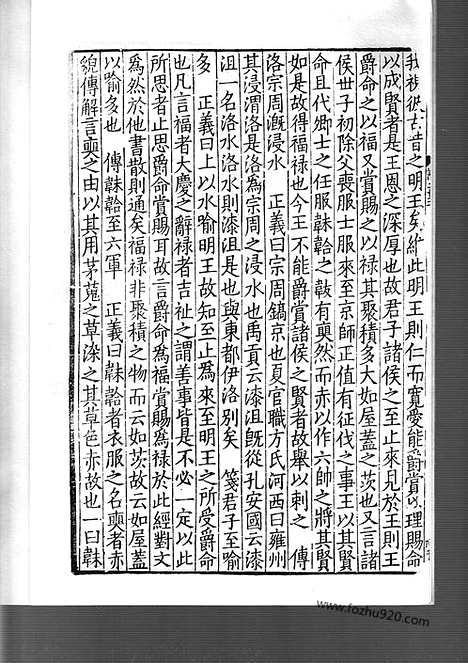 我視彼古昔之明王矣維此明王則仁而寬愛能爵賞以理賜命
以成賢者是王恩之深厚也故君子諸侯之至止來見於王則王
爵命之以福又賞賜之以禄其聚積多大如屋蓋之茨也又言諸
侯世子初除父喪服士服來至京師正值有征伐之事王以其賢
命且代卿士之任服韎韐之韍有奭然而赤以作六師之將其賢
如是故得福禄也今王不能爵賞諸侯之賢者故舉以刺之 傳
洛宗周漑浸水 正義曰宗周鎬京也夏官職方氏河西曰雍州
其浸渭洛是洛為宗周之浸水也禹貢云漆沮旣從孔安國云漆
沮一名洛水洛水則漆沮是也與東都伊洛別矣 箋君子至喻
多 正義曰上以水喻明王故知至止為來至明王之所受爵命
也凡言福者大慶之辭禄者吉祉之謂善事皆是不必一定以此
所思者止思爵命賞賜耳故言爵命為福賞賜為禄於此經對文
為然於他書散則通矣福禄非聚積之物而云如茨故云如屋蓋
以喻多也 傳韎韐至六軍 正義曰韎韐者衣服之名奭者赤
貌傳解言奭之由以其用茅蒐之草染之其草色赤故也一曰韎
www.fozhu920.com